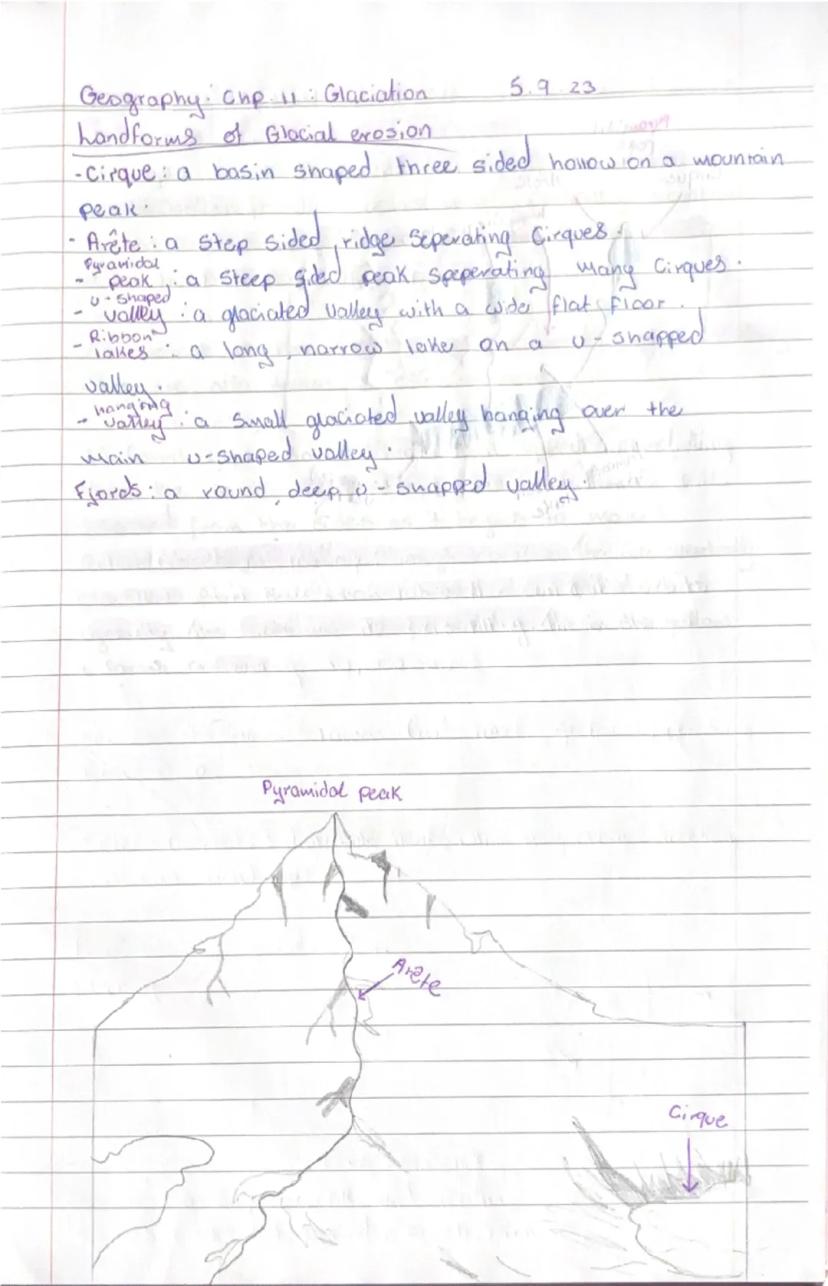 Geography: Chp 11: Glaciation 5.9.23
Landforms of Glacial erosion
-Cirque: a basin shaped three sided hollow on a mountain
peak.
- Arête: a step sided ridge seperating Cirques.
- Pyramidal peak: a steep sided peak speperating many Cirques.
- U-shaped valley: a glaciated valley with a wide flat floor.
- Ribbon lakes: a long, narrow lake on a U-shapped
valley.
- hanging valley: a small glaciated valley hanging over the
main U-shaped valley.
Fjords: a round, deep, U-shapped valley.
Pyramidal peak
Arête
Cirque